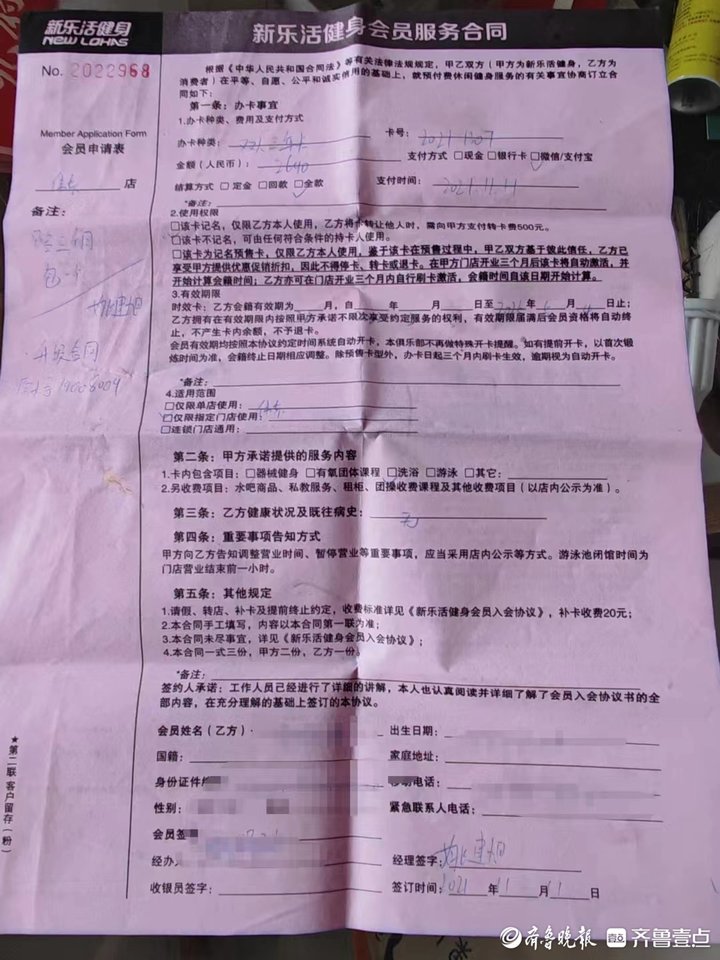 新乐活健身
NEW LOHAS
新乐活健身会员服务合同
No. 2022968
Member Application Form
会员申请表
店
备注：
升级合同
根据《中华人民共和国合同法》等有关法律法规规定，甲乙双方（甲方为新乐活健身，乙方为
消费者）在平等、自愿、公平和诚实信用的基础上，就预付费休闲健身服务的有关事宜协商订立合
同如下：
第一条：办卡事宜
1.办卡种类、费用及支付方式
办卡种类： 卡号：
金额（人民币）：2640 支付方式 □现金 □银行卡 □微信/支付宝
结算方式 □定金 □回款 □全款 支付时间：2021.11.11
*备注：
2.使用权限
□该卡记名，仅限乙方本人使用，乙方将卡转让他人时，需向甲方支付转卡费500元。
□该卡不记名，可由任何符合条件的持卡人使用。
□该卡为记名预售卡，仅限乙方本人使用，鉴于该卡在预售过程中，甲乙双方基于彼此信任，乙方已
享受甲方提供优惠促销折扣，因此不得停卡、转卡或退卡。在甲方门店开业三个月后该卡将自动激活，并
开始计算会籍时间；乙方亦可在门店开业三个月内自行刷卡激活，会籍时间自该日期开始计算。
3.有效期限
时效卡：乙方会籍有效期为 月，自 年 月 日至 年 月 日止；
乙方拥有在有效期限内按照甲方承诺不限次享受约定服务的权利，有效期限届满后会员资格将自动终
止，不产生卡内余额，不予退卡。
会员有效期均按照本协议约定时间系统自动开卡，本俱乐部不再做特殊开卡提醒。如有提前开卡，以首次锻
炼时间为准，会籍终止日期相应调整。除预售卡型外，办卡日起三个月内刷卡生效，逾期视为自动开卡。
*备注：
4.适用范围
□仅限单店使用：
□仅限指定门店使用：
□连锁门店通用：
第二条：甲方承诺提供的服务内容
1.卡内包含项目：□器械健身 □有氧团体课程 □洗浴 □游泳 □其它：
2.另收费项目：水吧商品、私教服务、租柜、团操收费课程及其他收费项目（以店内公示为准）。
第三条：乙方健康状况及既往病史：无
第四条：重要事项告知方式
甲方向乙方告知调整营业时间、暂停营业等重要事项，应当采用店内公示等方式。游泳池闭馆时间为
门店营业结束前一小时。
第五条：其他规定
1.请假、转店、补卡及提前终止约定，收费标准详见《新乐活健身会员入会协议》，补卡收费20元；
2.本合同手工填写，内容以本合同第一联为准；
3.本合同未尽事宜，详见《新乐活健身会员入会协议》；
4.本合同一式三份，甲方二份，乙方一份。
*备注：
签约人承诺：工作人员已经进行了详细的讲解，本人也认真阅读并详细了解了会员入会协议书的全
部内容，在充分理解的基础上签订的本协议。
会员姓名（乙方）： 出生日期：
国籍： 家庭地址：
身份证件 移动电话：
性别： 紧急联系人电话：
会员签
经办 经理签字：
收银员签字： 签订时间：2021年11月11日
★第二联 客户留存（粉）
齐鲁晚报 齐鲁壹点